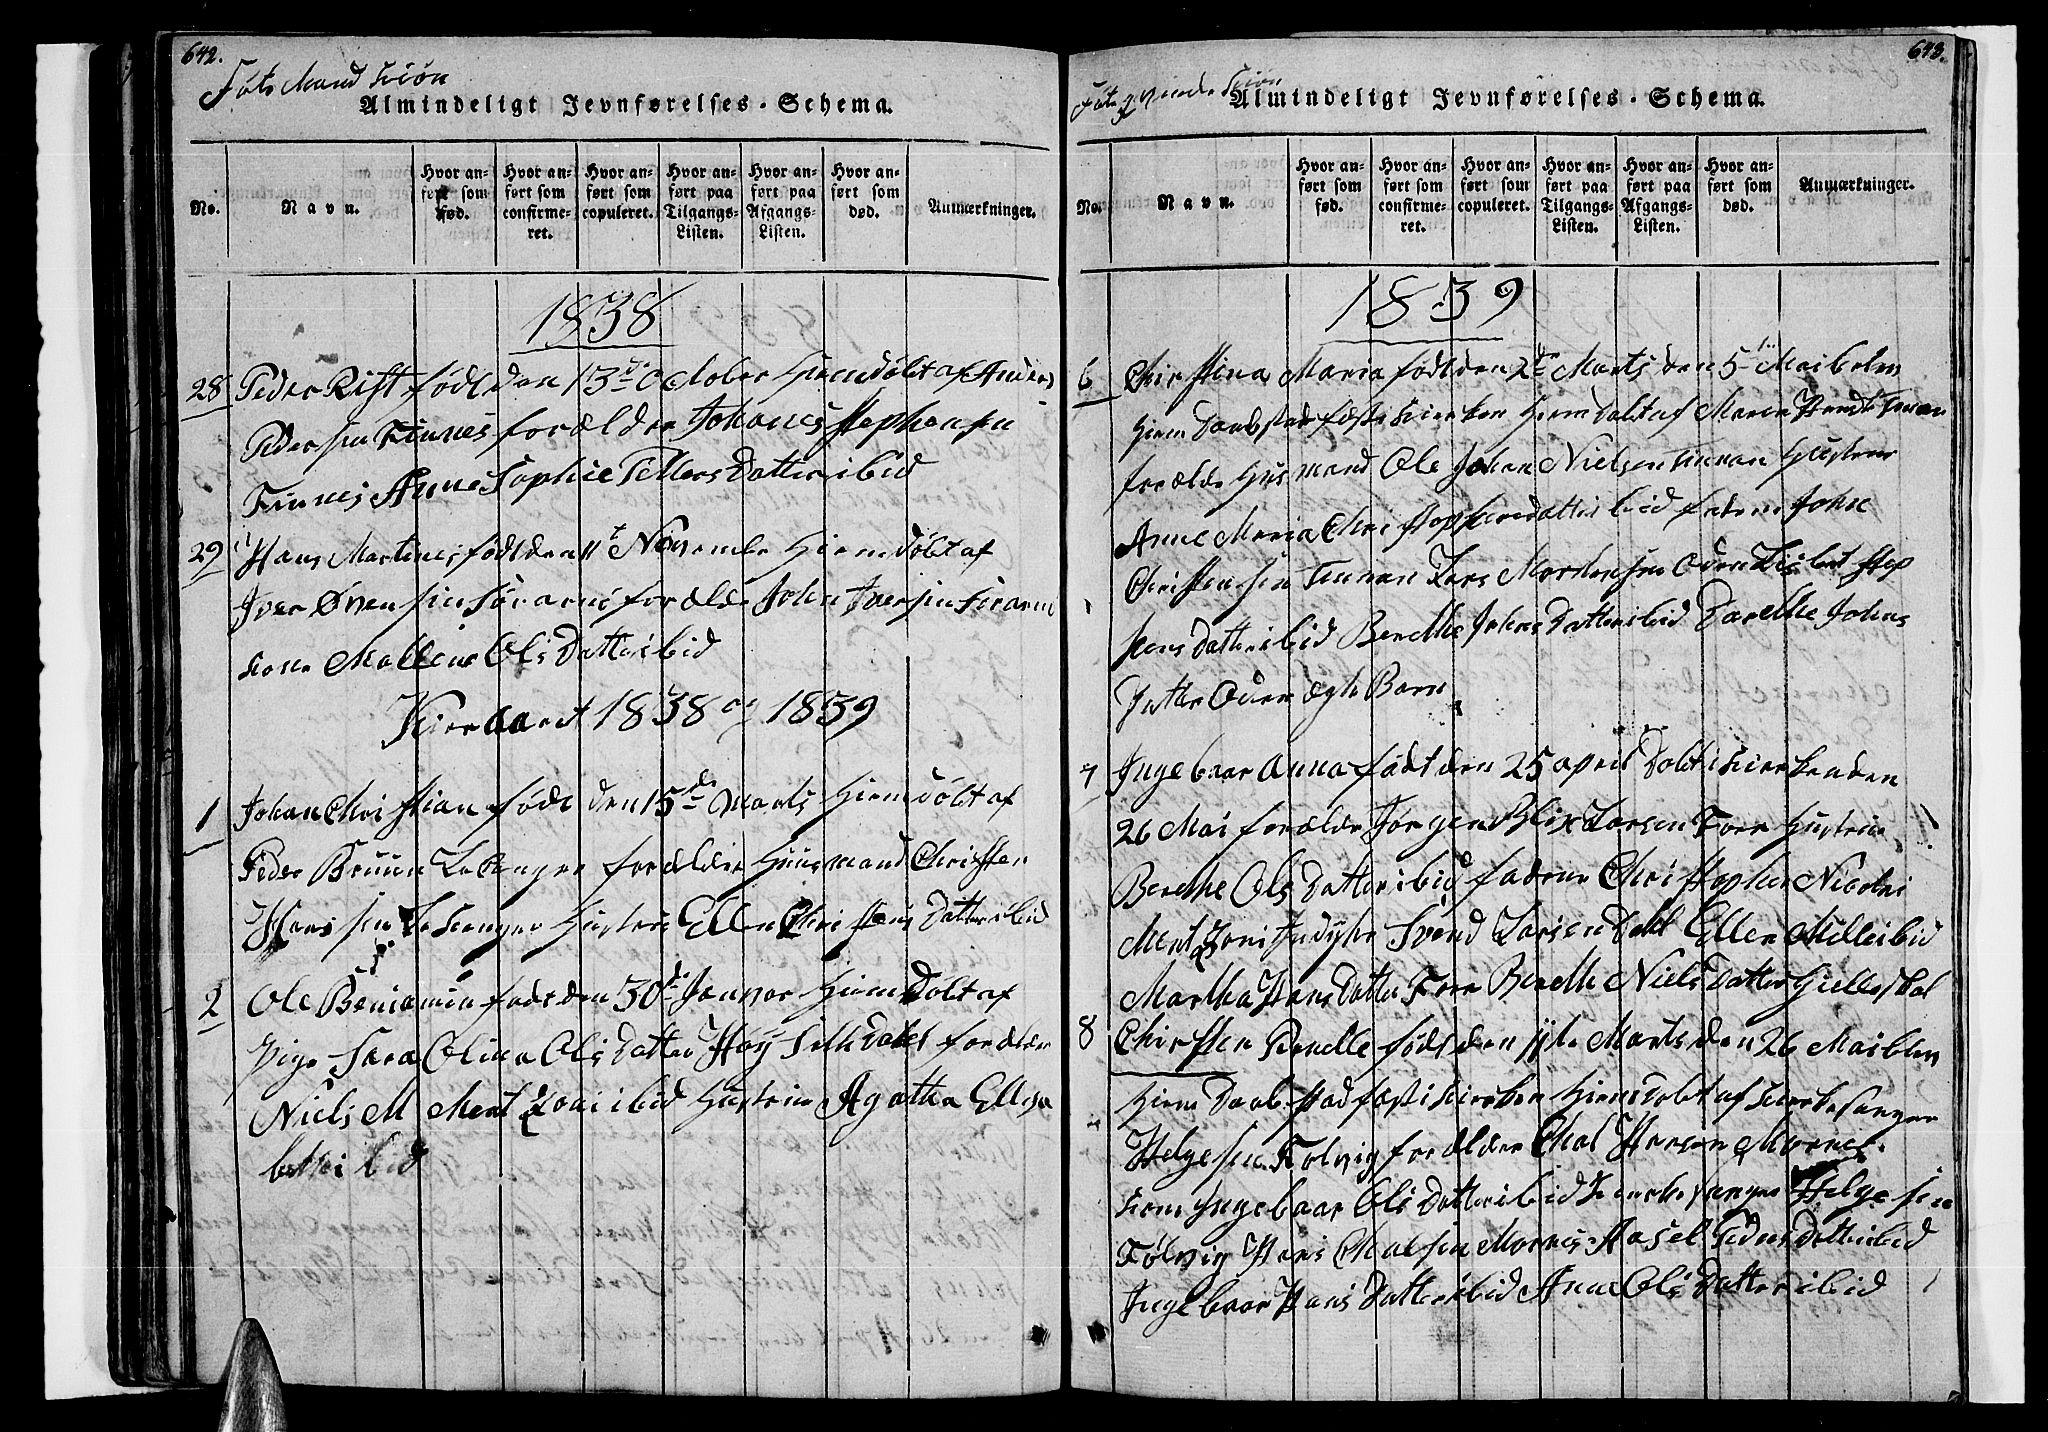 642.
Føte Mand Kiøn
Almindeligt Jevnførelses-Schema.
No.
Navn.
Hvor anført som fød.
Hvor anført som confirmeret.
Hvor anført som copuleret.
Hvor anført paa Tilgangs-Listen.
Hvor anført paa Afgangs-Listen.
Hvor anført som død.
Anmærkninger.
1838
28 Peder Rist født den 13de October Hiemdøbt af Anders
Pedersen Finnes forælder Johanes Stephensen
Finnes Anne Sophie Pettersdatter ibid
29 Hans Martines født den 11t Novembe Hiemdøbt af
Iver Øvensen forælde John Iversen
kone Mallene Olsdatter ibid
Kierkaaret 1838 og 1839
1 Johan Christian født den 15de Marts Hiemdøbt af
Peder Bruun forælder Huusmand Christen
Hansen Hustrue Ellen Christensdatter ibid
2 Ole Beniamin født den 30de Januar Hiemdøbt af
Pige Sara Olina Olsdatter forælder
Niels M Mentzoni ibid Hustrue Agatha Ellisa
beth ibid
643.
Føte Qvinde Kiøn
Almindeligt Jevnførelses-Schema.
No.
Navn.
Hvor anført som fød.
Hvor anført som confirmeret.
Hvor anført som copuleret.
Hvor anført paa Tilgangs-Listen.
Hvor anført paa Afgangs-Listen.
Hvor anført som død.
Anmærkninger.
1839
6 Christina Maria født den 2de Marts den 5te Mai belen
Hiem Daab stadfæste i kierken Hiemdøbt af
forælde Husmand Ole Johan Nielsen Hustrue
Anne Maria Christophersdatter ibid fadene John
Christensen Lars Mortensen Oden Lisbet Step
hensdatter ibid Berethe Johnsdatter ibid Dorethe Johns
Datter Oden ægte Barn
7 Ingebaar Anna født den 25 april Døbt i kierken den
26 Mai forælde Jørgen Blix Larsen Hustrue
Berethe Olsdatter ibid fadene Christopher Nicolai
Mentzoni Svend Larsen Ellen ibid
Martha Hansdatter Berethe Nielsdatter
8 Christen Pernelle født den 11te Marts den 26 Mai blev
Hiem Daab stadfæst i kierken Hiemdøbt af kierkesanger
Helgesen forælder Hansen Mornes
kone Ingebaar Olsdatter ibid kierkesanger Helgesen
Hans Mornes Aasel Pedersdatter ibid
Ingebaar Hansdatter ibid Anne Olsdatter ibid